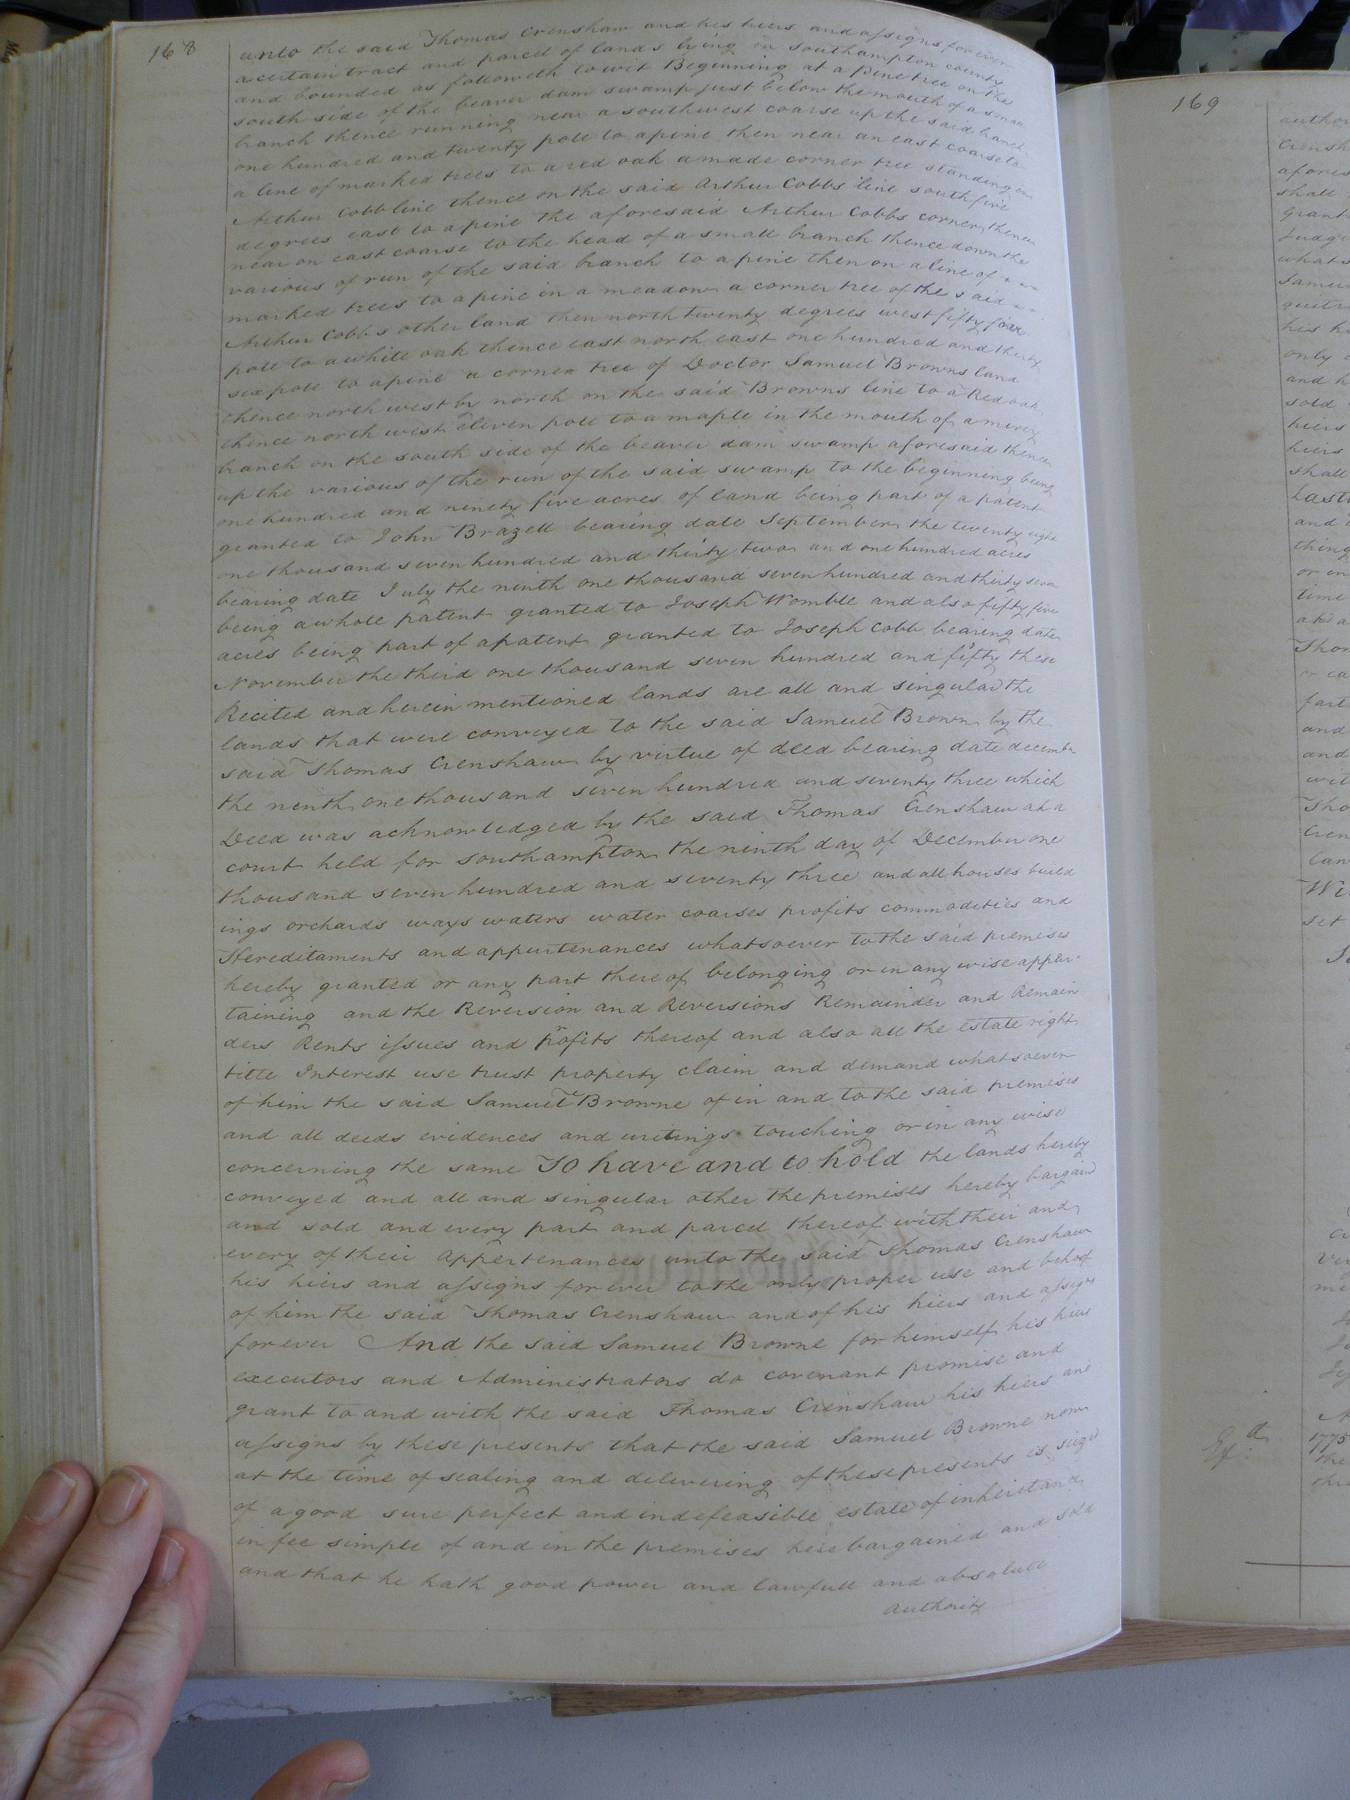 168
unto the said Thomas Crenshaw and his hiers and assigns forever
a certain tract and parcel of lands lying in Southampton county
and bounded as followeth to wit Beginning at a pine tree on the
south side of the beaver dam swamp just below the mouth of a small
branch thence running near a southwest coarse up the said branch
one hundred and twenty pole to a pine then near an east coarse to
a line of marked trees to a red oak a made corner tree standing on
Arthur Cobb line thence on the said Arthur Cobbs line south five
degrees east to a pine the aforesaid Arthur Cobbs corner thence
near on east coarse to the head of a small branch thence down the
various of run of the said branch to a pine then on a line of
marked trees to a pine in a meadow a corner tree of the said
Arthur Cobb's other land then north twenty degrees west fifty four
pole to a white oak thence east north east one hundred and thirty
six pole to a pine a corner tree of Doctor Samuel Browns land
thence north west by north on the said Browns line to a Red oak
thence north west eleven pole to a maple in the mouth of a mirey
branch on the south side of the beaver dam swamp aforesaid thence
up the various of the run of the said swamp to the beginning being
one hundred and ninety five acres of land being part of a patent
granted to John Brazell bearing date September the twenty eight
one thousand seven hundred and thirty two and one hundred acres
bearing date July the ninth one thousand seven hundred and thirty seven
being a whole patent granted to Joseph Womble and also fifty five
acres being part of a patent granted to Joseph Cobb bearing date
November the third one thousand seven hundred and fifty these
Recited and herein mentioned lands are all and singular the
lands that were conveyed to the said Samuel Brown by the
said Thomas Crenshaw by virtue of deed bearing date decembr
the ninth one thousand seven hundred and seventy three which
Deed was acknowledged by the said Thomas Crenshaw at a
court held for Southampton the ninth day of December one
thousand seven hundred and seventy three and all houses build
ings orchards ways waters water coarses profits commodities and
Hereditaments and appurtenances whatsoever to the said premises
hereby granted or any part thereof belonging or in any wise apper-
taining and the Reversion and Reversions Remainder and Remain
ders Rents issues and profits thereof and also all the estate right
title Interest use trust property claim and demand whatsoever
of him the said Samuel Browne of in and to the said premises
and all deeds evidences and writings touching or in any wise
concerning the same To have and to hold the lands hereby
conveyed and all and singular other the premises hereby bargaind
and sold and every part and parcel thereof with their and
every of their appertenances unto the said Thomas Crenshaw
his hiers and assigns forever to the only proper use and behoof
of him the said Thomas Crenshaw and of his hiers and assigns
forever And the said Samuel Browne for himself his hiers
executors and Administrators do covenant promise and
grant to and with the said Thomas Crenshaw his hiers and
assigns by these presents that the said Samuel Browne now
at the time of sealing and delivering of these presents is siezd
of a good sure perfect and indefeasible estate of inheritance
in fee simple of and in the premises here bargained and sold
and that he hath good power and lawfull and absolute
authority
169